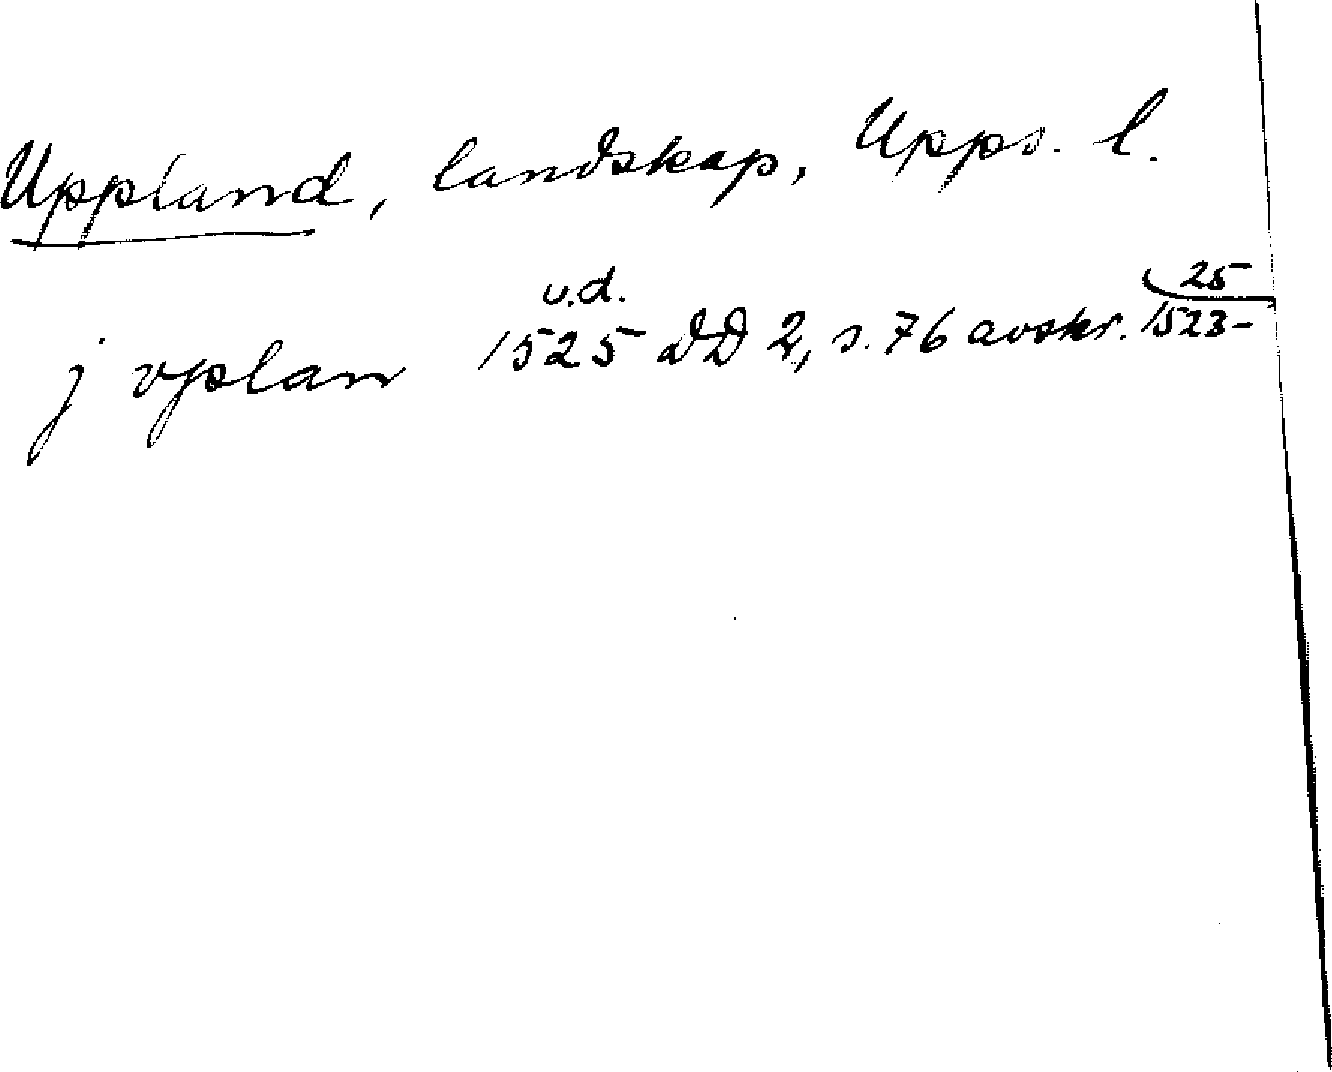 Uppland, landskap, Upps. l.
u.d. 25
j vplan 1525 DD 2, s. 76 avskr. 1523-